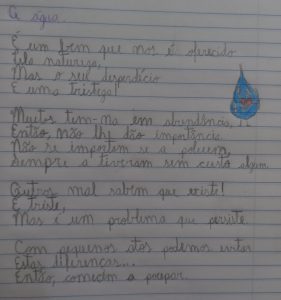 A água
É um bem que nos é oferecido
Pela natureza,
Mas o seu desperdício
É uma tristeza!
Muitos têm-na em abundância,
Então, não lhe dão importância.
Não se importam se a poluem,
Sempre a tiveram sem custo algum.
Outros mal sabem que existe!
É triste,
Mas é um problema que persiste.
Com pequenos atos podemos evitar
Estas diferenças...
Então, comecem a poupar.